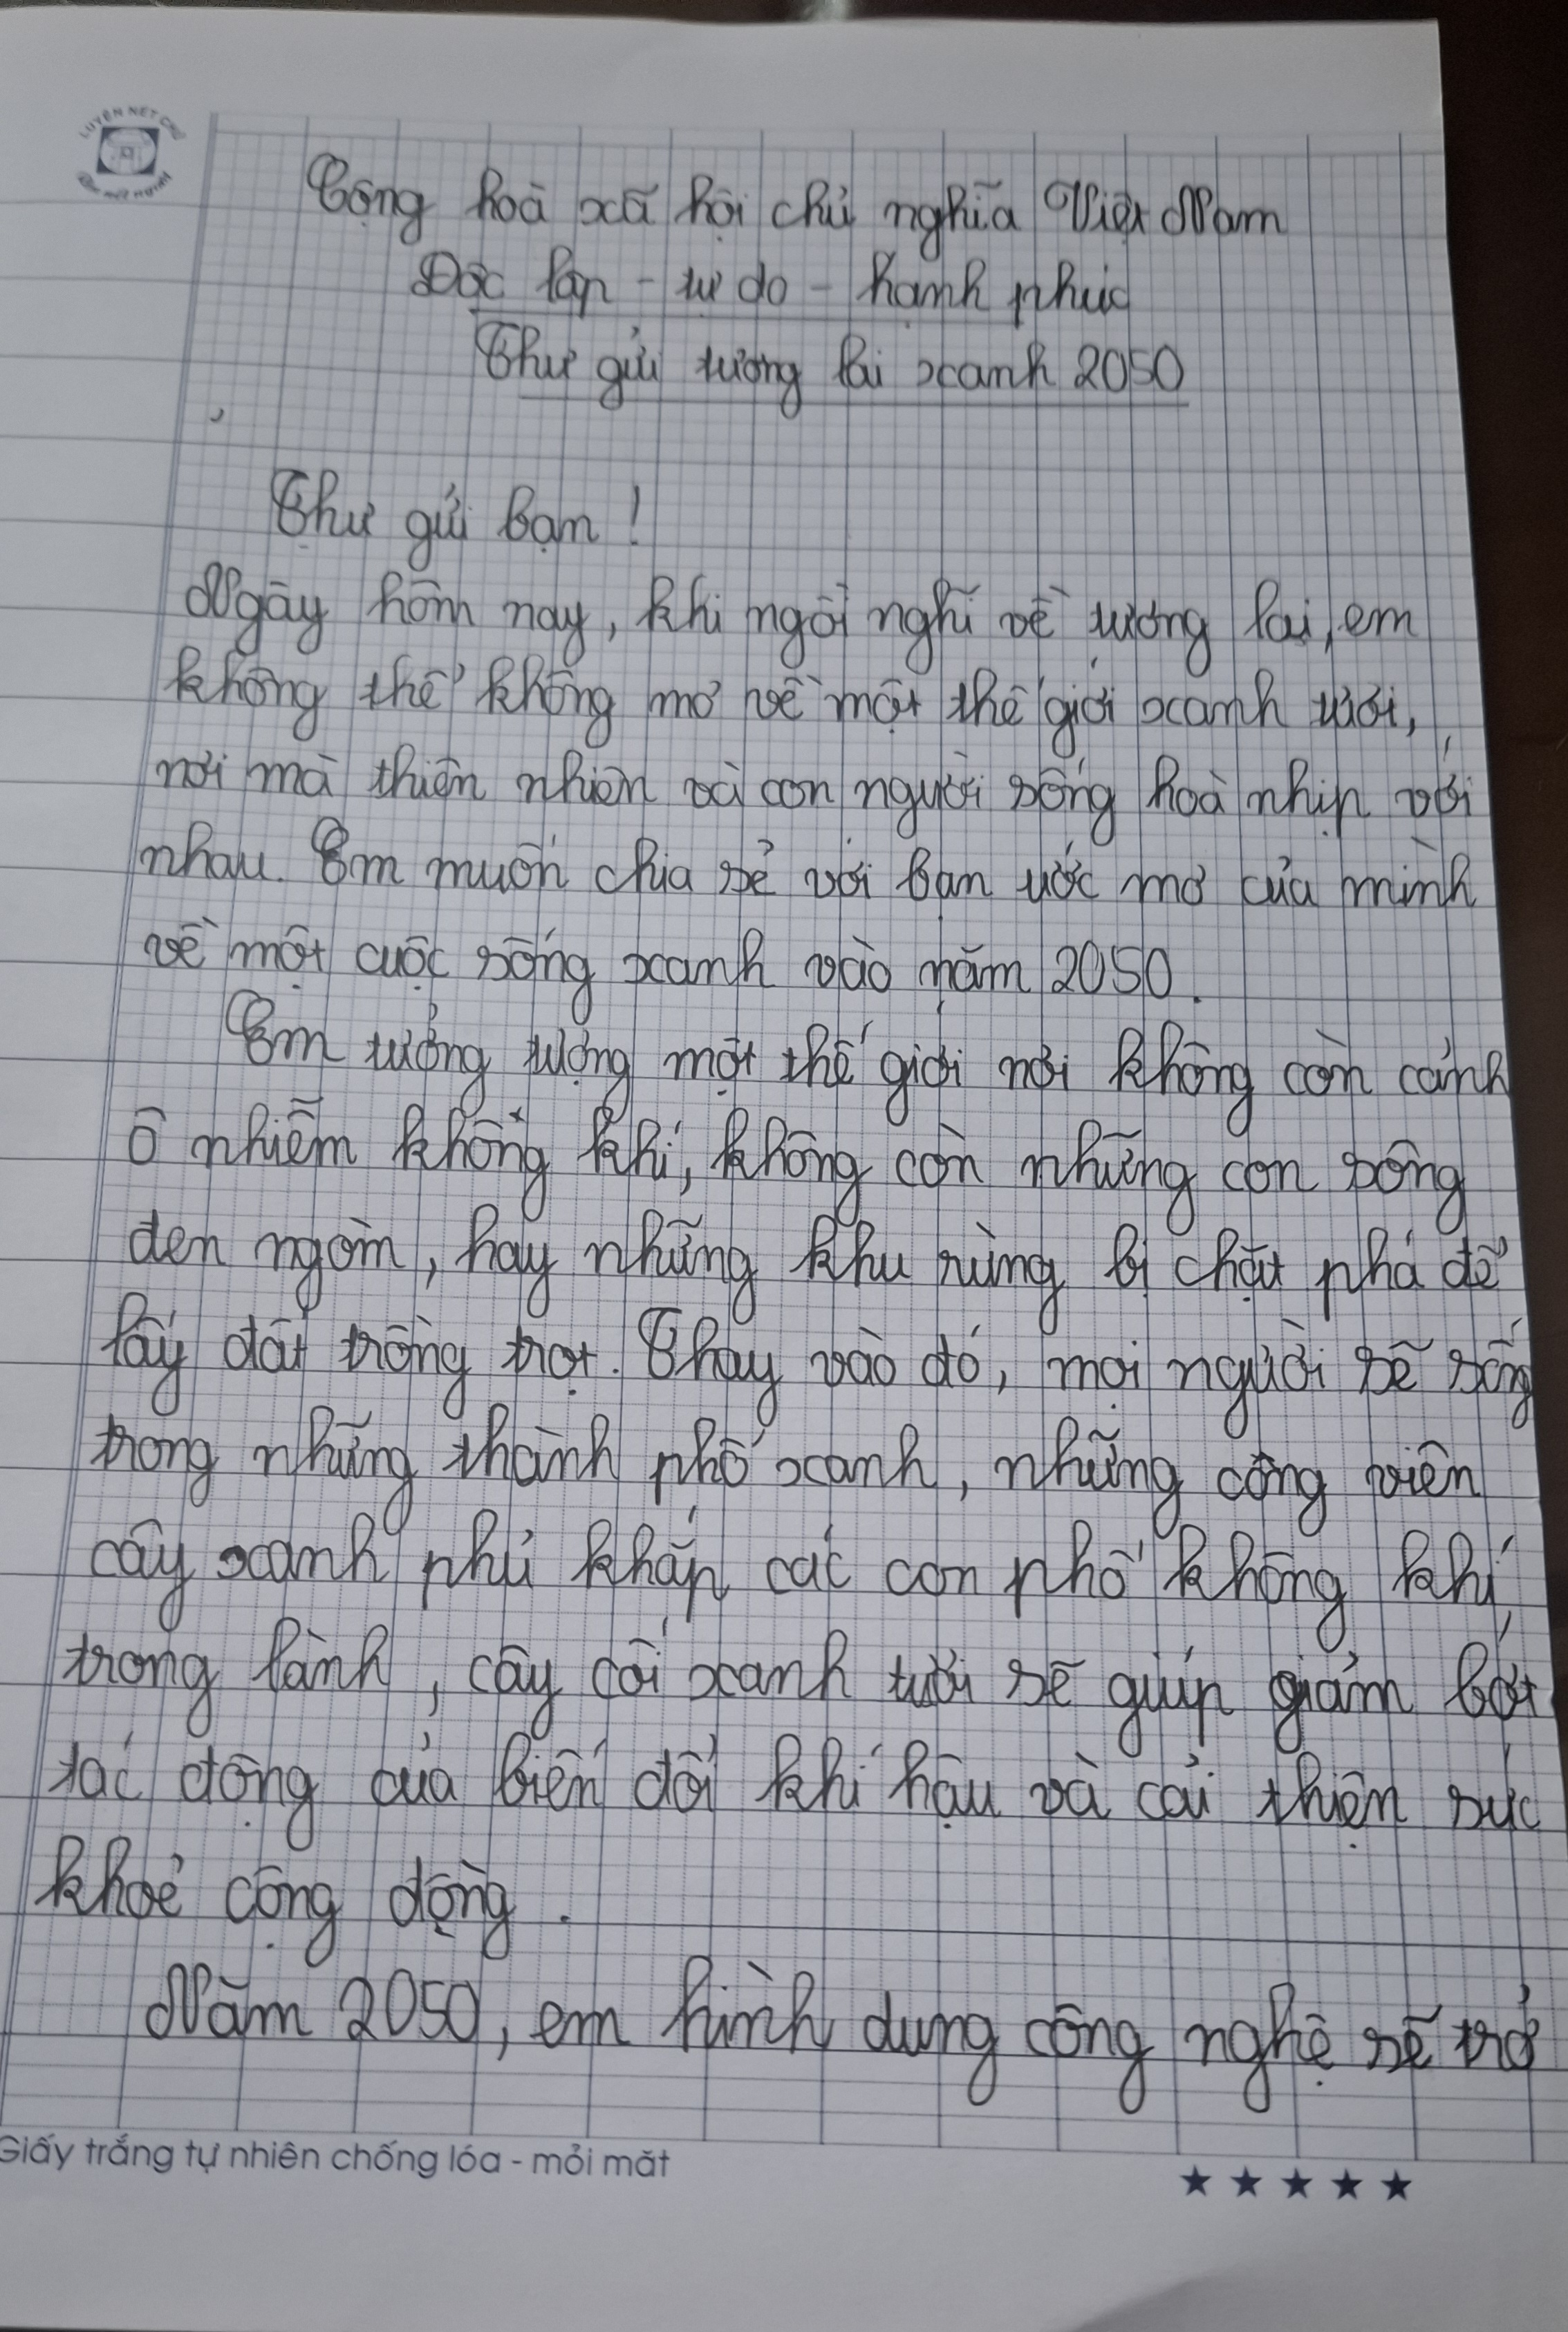 LUYỆN NÉT CHỮ
Cộng hoà xã hội chủ nghĩa Việt Nam
Độc lập - tự do - hạnh phúc
Thư gửi tương lai xanh 2050
Thư gửi bạn !
Ngày hôm nay, khi ngồi nghĩ về tương lai, em
không thể không mơ về một thế giới xanh tươi,
nơi mà thiên nhiên và con người sống hoà nhịp với
nhau. Em muốn chia sẻ với bạn ước mơ của mình
về một cuộc sống xanh vào năm 2050.
Em tưởng tượng một thế giới nơi không còn cảnh
ô nhiễm không khí, không còn những con sông
đen ngòm, hay những khu rừng bị chặt phá để
lấy đất trồng trọt. Thay vào đó, mọi người sẽ sống
trong những thành phố xanh, những công viên
cây xanh phủ khắp các con phố không khí
trong lành, cây cối xanh tươi sẽ giúp giảm bớt
tác động của biến đổi khí hậu và cải thiện sức
khoẻ cộng động.
Năm 2050, em hình dung công nghệ sẽ trở
Giấy trắng tự nhiên chống lóa - mỏi mắt
★ ★ ★ ★ ★